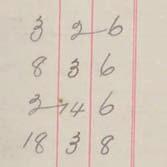 3 2 6
8 3 6
2 14 6
18 3 8